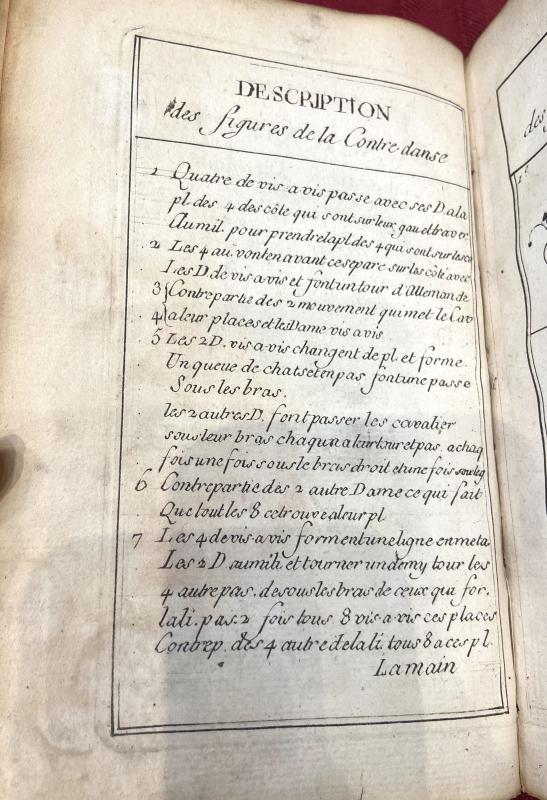 DESCRIPTION
des figures de la Contre-danse
1 Quatre de vis a vis passe avec ses D. a la
pl. des 4 des côte qui sont sur leux gau et traver
Aumil. pour prendre la pl. des 4 qui sont sur
2 Les 4 au. vont en avant ce separe sur les côte avec
Les D. de vis a vis et font un tour d'Allemande
3 Contrepartie des 2 mouvement qui met le Cav
4 a leur places et les Dame vis a vis
5 Les 2 D. vis-a-vis changent de pl. et forme
Un queue de chats et en pas font une passe
Sous les bras.
les 2 autres D. font passer les cavalier
sous leur bras chaqun a leur tour et pas a chaq
fois une fois sous le bras droit et une fois sous le g
6 Contrepartie des 2 autre Dame ce qui fait
Que tout les 8 ce trouve a leur pl.
7 Les 4 de vis-a-vis forment une ligne en meta
Les 2 D. au mili et tourner un demy tour les
4 autre pas. desous les bras de ceux qui for.
la li. pas. 2 fois tous 8 vis-a-vis ces places
Contrep. des 4 autre de la li. tous 8 a ces pl.
La main
des
1